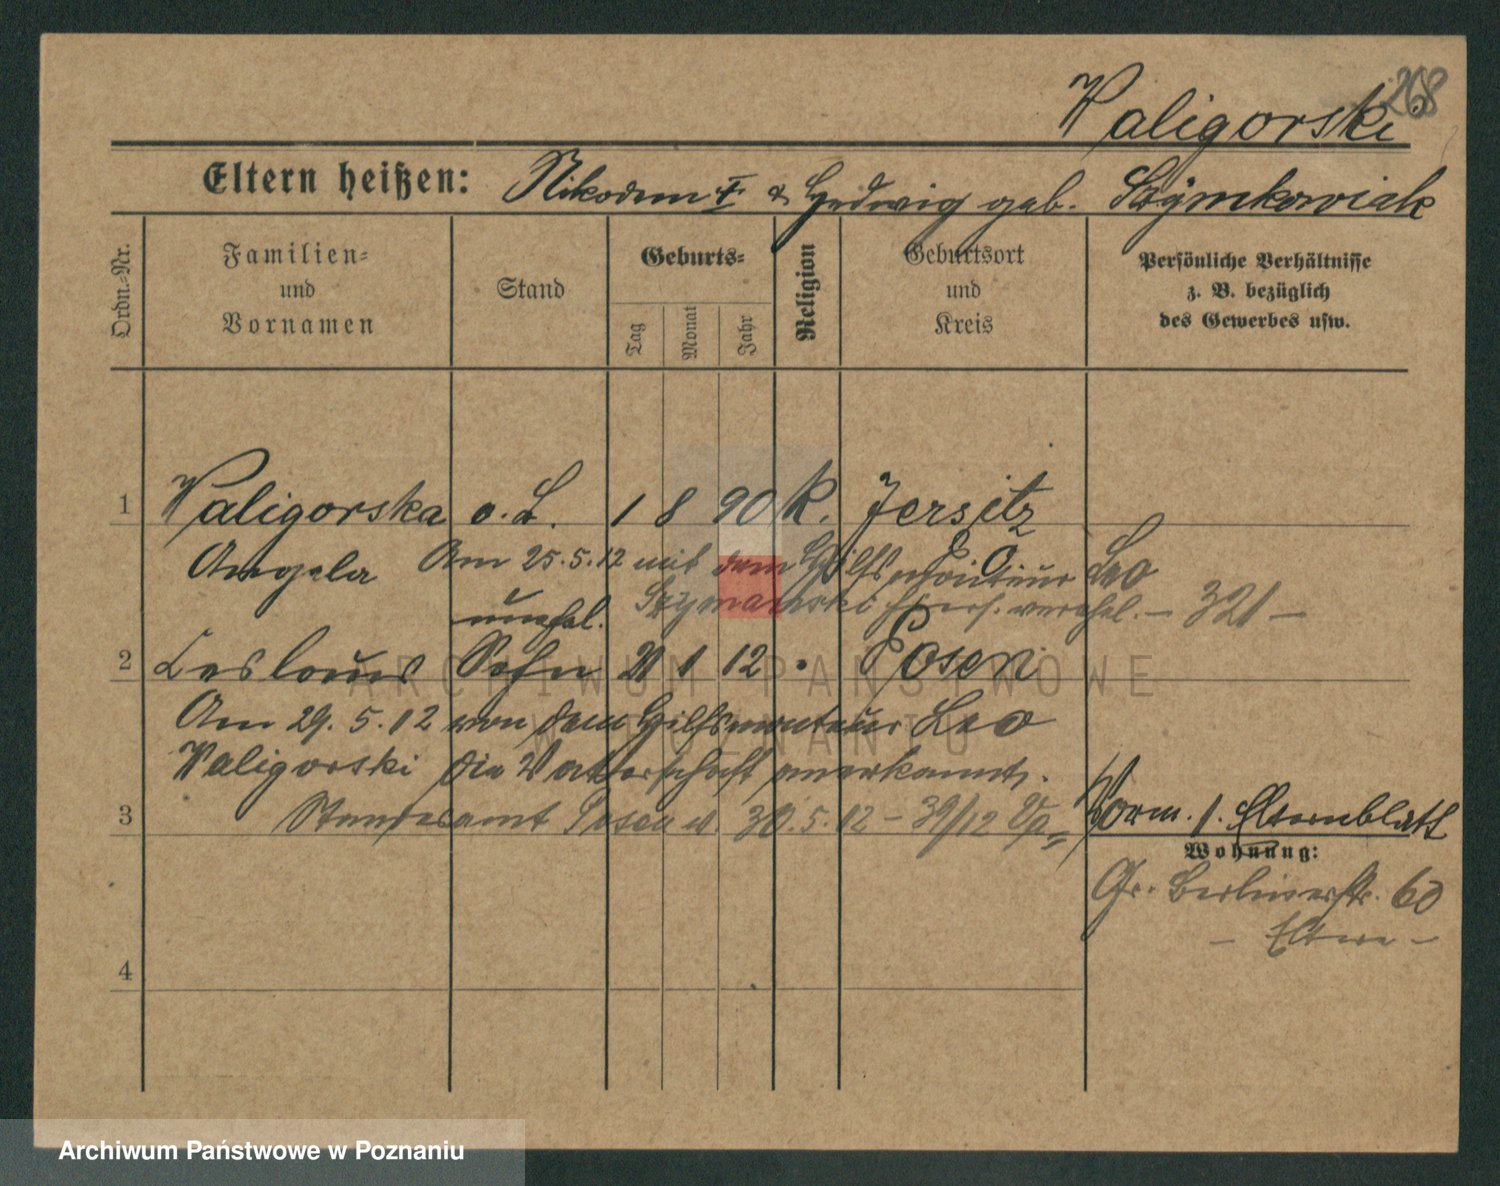 268
Waligorski
Eltern heißen: Nikodem † & Hedwig geb. Szymkowiak
Ordn.-Nr.
Familien-
und
Vornamen
Stand
Geburts-
Tag
Monat
Jahr
Religion
Geburtsort
und
Kreis
Persönliche Verhältnisse
z. B. bezüglich
des Gewerbes usw.
1 Waligorska o. B. 1 8 90 K. Jersitz
Angela Am 25.5.12 mit dem Hilfsmonteur Leo
Szymanski verehel. – 321 –
unehel.
2 Leslaus Sohn 21 1 12 Posen
Am 29. 5. 12 von dem Hilfsmonteur Leo
Waligorski die Vaterschaft anerkannt.
3 Standesamt Posen v. 30. 5. 12 – 39/12
Vorm. 1. Elternblatt
Wohnung:
Gr. Berlinerstr. 60
– Eltern –
4
ARCHIWUM PAŃSTWOWE
W POZNANIU
Archiwum Państwowe w Poznaniu